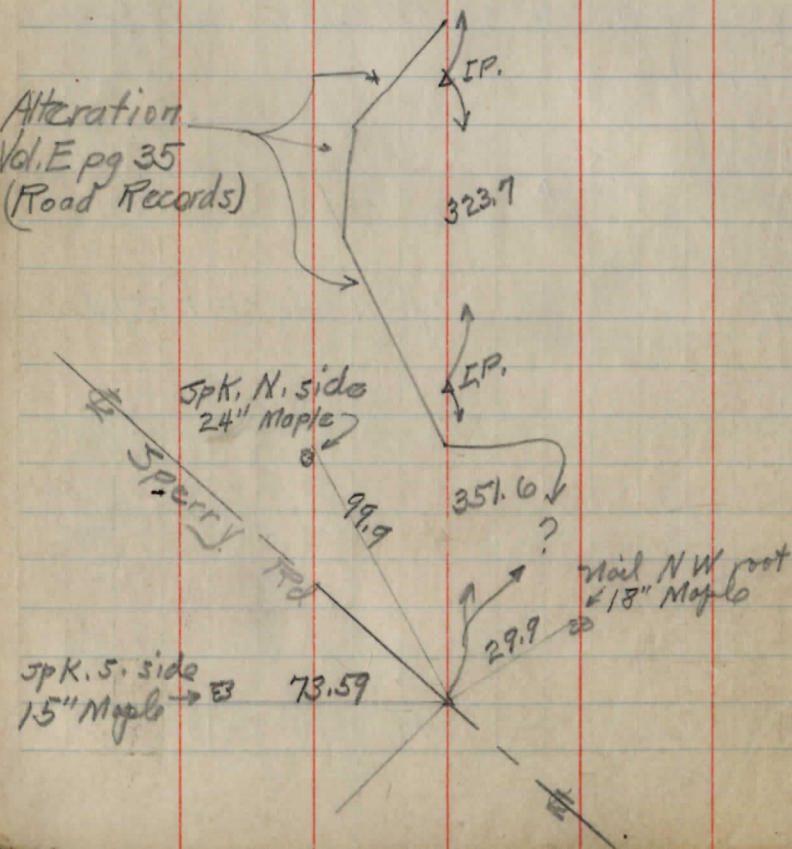 I.P.
Alteration
Vol. E pg 35
(Road Records)
323.7
I.P.
Spk. N. side
24" Maple
Sperry Rd
99.9
351.6
?
Nail N W root
18" Maple
29.9
Spk. S. side
15" Maple
73.59